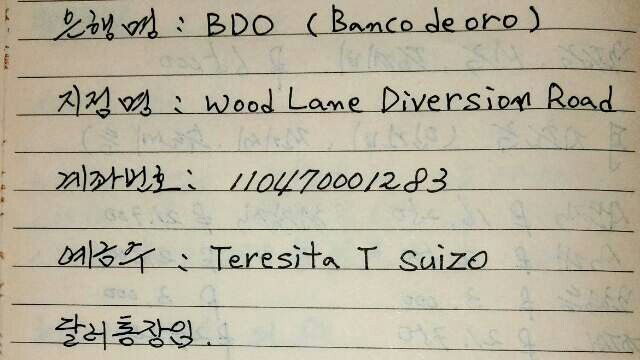 은행명 : BDO (Banco de oro)
지점명 : Wood Lane Diversion Road
계좌번호 : 110470001283
예금주 : Teresita T Suizo
달러통장임.